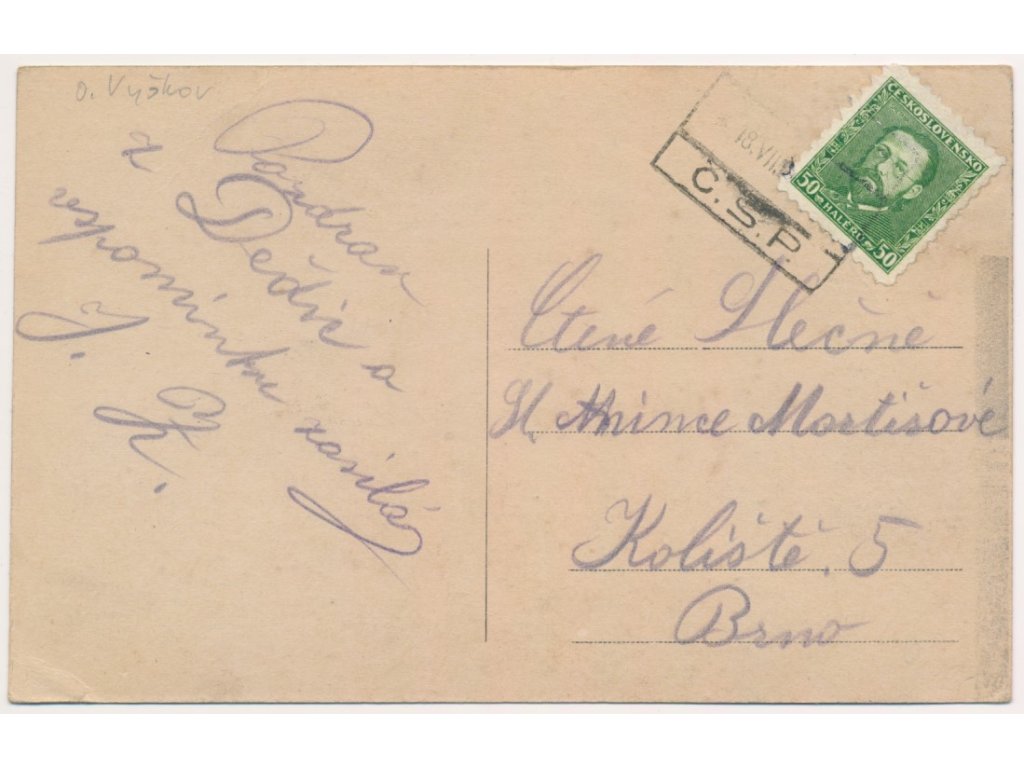 o. Vyškov
Pozdrav
z Dědic a
vzpomínku zasílá
J. K.
18.VII.
Č.S.P.
ČESKOSLOVENSKO
50 HALÉŘŮ 50
Ctěné Slečně
Sl. Anince Martisové
Koliště. 5
Brno